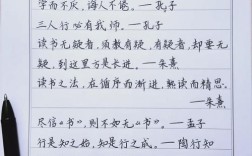 学而不厌，诲人不倦。—孔子
三人行必有我师。—孔子
读书无疑者，须教有疑，有疑者，却要无
疑，到这里方是长进。—朱熹
读书之法，在循序而渐进，熟读而精思。
—朱熹
尽信“书”，则不如无“书”。—孟子
行是知之始，知是行之成。—陶行知